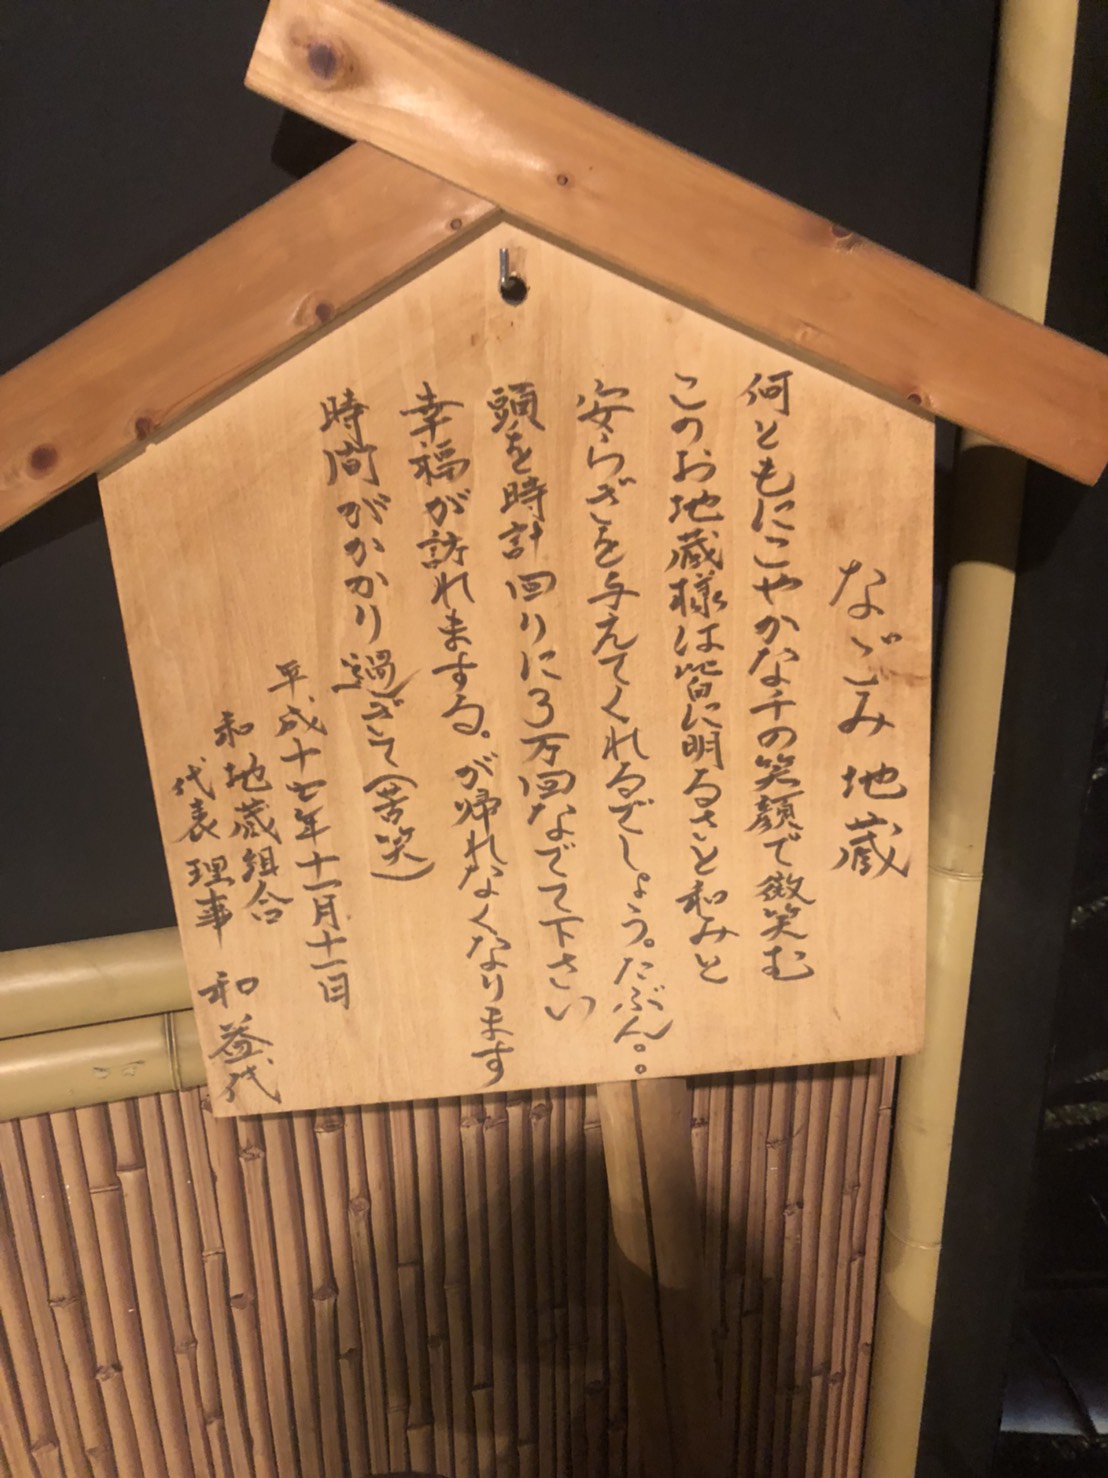 なごみ地蔵
何ともにこやかな千の笑顔で微笑む
このお地蔵様は皆に明るさと和みと
安らぎを与えてくれるでしょう。たぶん。。
頭を時計回りに3万回なでて下さい
幸福が訪れまする。が帰れなくなります
時間がかかり過ぎて(苦笑)
平成十七年十一月十一日
和地蔵組合
代表理事 和益代